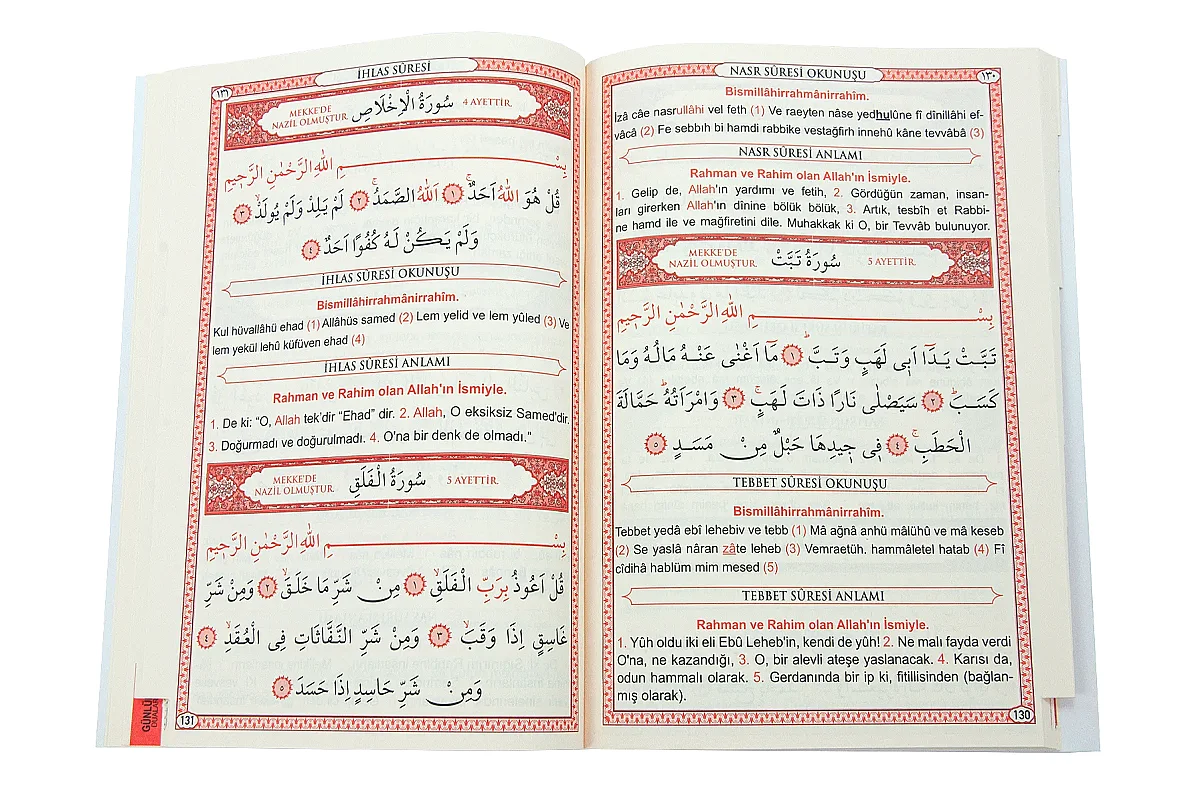 NASR SÛRESİ OKUNUŞU
١٣٠
Bismillâhirrahmânirrahîm.
İzâ câe nasrullâhi vel feth (1) Ve raeyten nâse yedhulûne fî dînillâhi ef-
vâcâ (2) Fe sebbıh bi hamdi rabbike vestağfirh innehû kâne tevvâbâ (3)
NASR SÛRESİ ANLAMI
Rahman ve Rahim olan Allah'ın İsmiyle.
1. Gelip de, Allah'ın yardımı ve fetih, 2. Gördüğün zaman, insan-
ları girerken Allah'ın dînine bölük bölük, 3. Artık, tesbîh et Rabbi-
ne hamd ile ve mağfiretini dile. Muhakkak ki O, bir Tevvâb bulunuyor.
MEKKE'DE
NAZİL OLMUŞTUR.
سُورَةُ تَبَّتْ
5 AYETTİR.
بِسْــــــمِ اللّٰهِ الرَّحْمٰنِ الرَّحٖيمِ
تَبَّتْ يَدَٓا اَبٖي لَهَبٍ وَتَبَّؕ ﴿١﴾ مَٓا اَغْنٰى عَنْهُ مَالُهُ وَمَا
كَسَبَؕ ﴿٢﴾ سَيَصْلٰى نَارًا ذَاتَ لَهَبٍۚ ﴿٣﴾ وَامْرَاَتُهُؕ حَمَّالَةَ
الْحَطَبِۚ ﴿٤﴾ فٖي جٖيدِهَا حَبْلٌ مِنْ مَسَدٍ ﴿٥﴾
TEBBET SÛRESİ OKUNUŞU
Bismillâhirrahmânirrahîm.
Tebbet yedâ ebî lehebiv ve tebb (1) Mâ ağnâ anhü mâlühû ve mâ keseb
(2) Se yaslâ nâran zâte leheb (3) Vemraetüh. hammâletel hatab (4) Fî
cîdihâ hablüm mim mesed (5)
TEBBET SÛRESİ ANLAMI
Rahman ve Rahim olan Allah'ın İsmiyle.
1. Yûh oldu iki eli Ebû Leheb'in, kendi de yûh! 2. Ne malı fayda verdi
O'na, ne kazandığı, 3. O, bir alevli ateşe yaslanacak. 4. Karısı da,
odun hammalı olarak. 5. Gerdanında bir ip ki, fitillisinden (bağlan-
mış olarak).
130
İHLAS SÛRESİ
١٣١
MEKKE'DE
NAZİL OLMUŞTUR.
سُورَةُ الْاِخْلَاصِ
4 AYETTİR.
بِسْــــــمِ اللّٰهِ الرَّحْمٰنِ الرَّحٖيمِ
قُلْ هُوَ اللّٰهُ اَحَدٌۚ ﴿١﴾ اَللّٰهُ الصَّمَدُۚ ﴿٢﴾ لَمْ يَلِدْ وَلَمْ يُولَدْۙ ﴿٣﴾
وَلَمْ يَكُنْ لَهُ كُفُوًا اَحَدٌ ﴿٤﴾
İHLAS SÛRESİ OKUNUŞU
Bismillâhirrahmânirrahîm.
Kul hüvallâhü ehad (1) Allâhüs samed (2) Lem yelid ve lem yûled (3) Ve
lem yekül lehû küfüven ehad (4)
İHLAS SÛRESİ ANLAMI
Rahman ve Rahim olan Allah'ın İsmiyle.
1. De ki: “O, Allah tek'dir “Ehad” dir. 2. Allah, O eksiksiz Samed'dir.
3. Doğurmadı ve doğurulmadı. 4. O'na bir denk de olmadı.”
MEKKE'DE
NAZİL OLMUŞTUR.
سُورَةُ الْفَلَقِ
5 AYETTİR.
بِسْــــــمِ اللّٰهِ الرَّحْمٰنِ الرَّحٖيمِ
قُلْ اَعُوذُ بِرَبِّ الْفَلَقِۙ ﴿١﴾ مِنْ شَرِّ مَا خَلَقَۙ ﴿٢﴾ وَمِنْ شَرِّ
غَاسِقٍ اِذَا وَقَبَۙ ﴿٣﴾ وَمِنْ شَرِّ النَّفَّاثَاتِ فِي الْعُقَدِۙ ﴿٤﴾
وَمِنْ شَرِّ حَاسِدٍ اِذَا حَسَدَ ﴿٥﴾
131